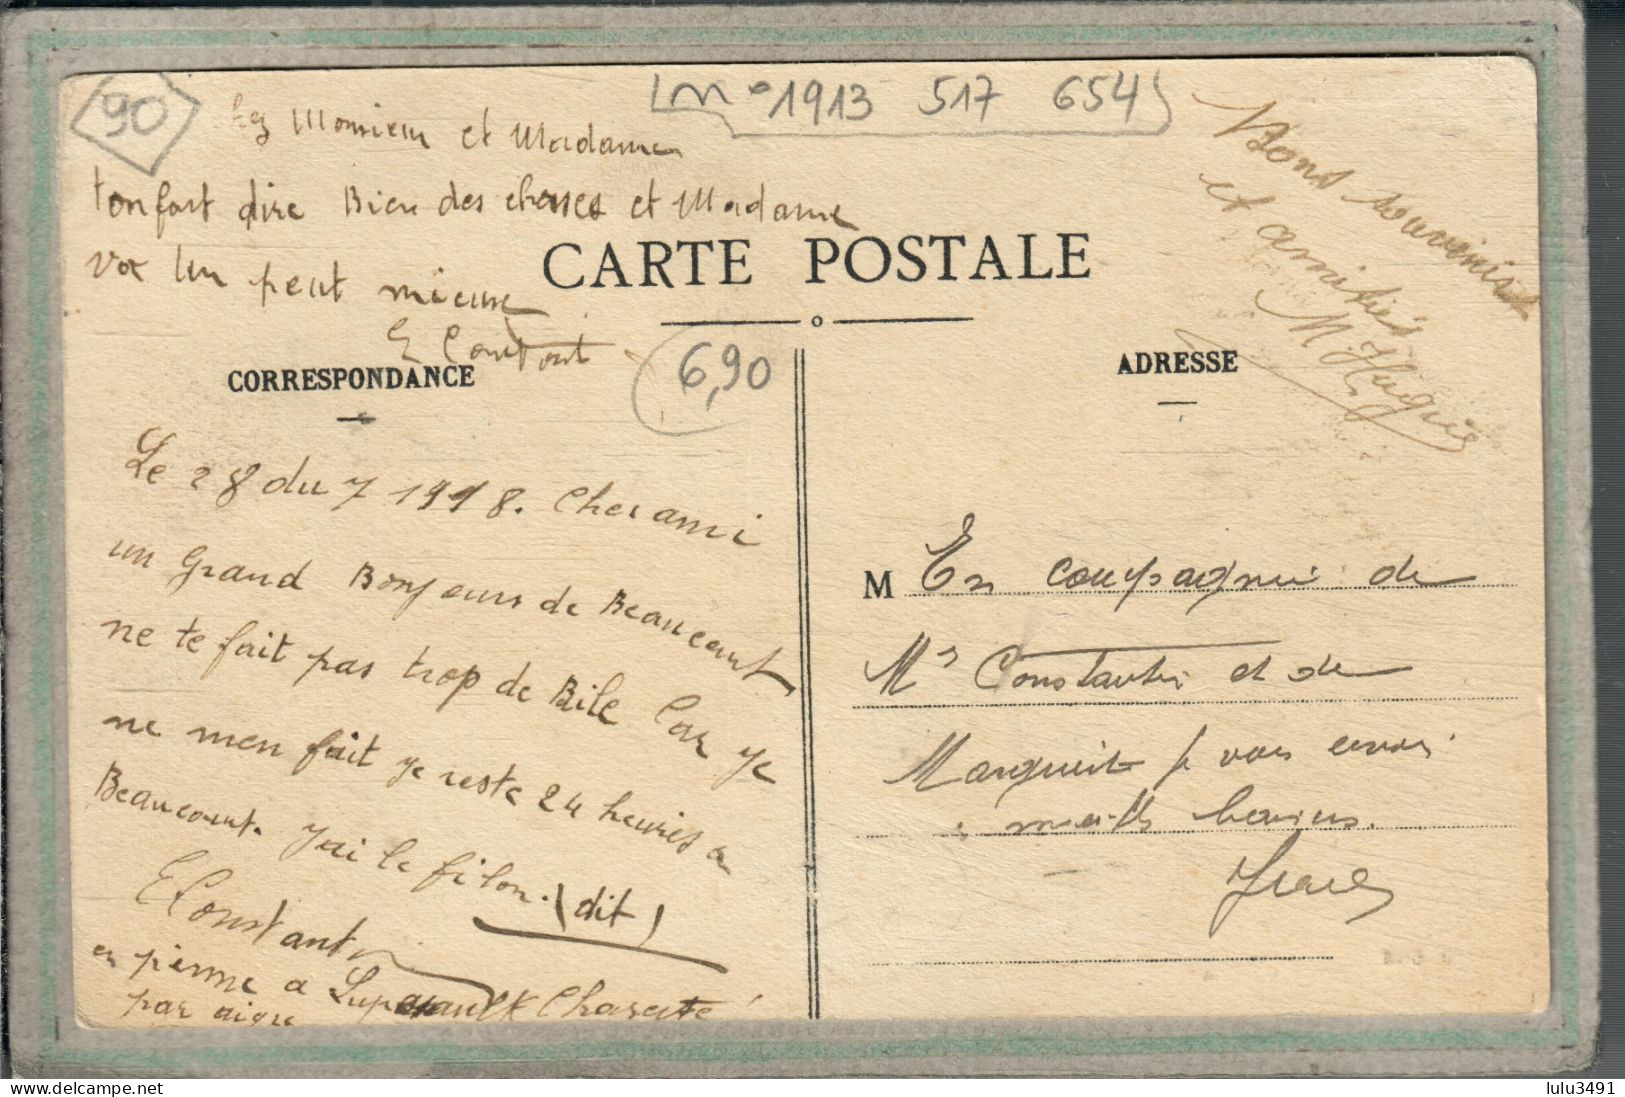 90
N° 1913 517 654
Monsieur et Madame
tonfort dire Bien des choses et Madame
un peut mieux
CARTE POSTALE
Bons souvenirs
et amitiés
M.
CORRESPONDANCE
6,90
ADRESSE
Le 28 du 7 1918. Cher ami
un Grand Bonjours de Beaucourt
ne te fait pas trop de Bile Car je
ne men fait je reste 24 heures a
Beaucourt. J'ai le filon. (dit)
E Constant
en perme a Charente
par aigre
M En compagnie de
Mr Constantin et de
Marguerit je vous envoi
baisers.
lulu3491